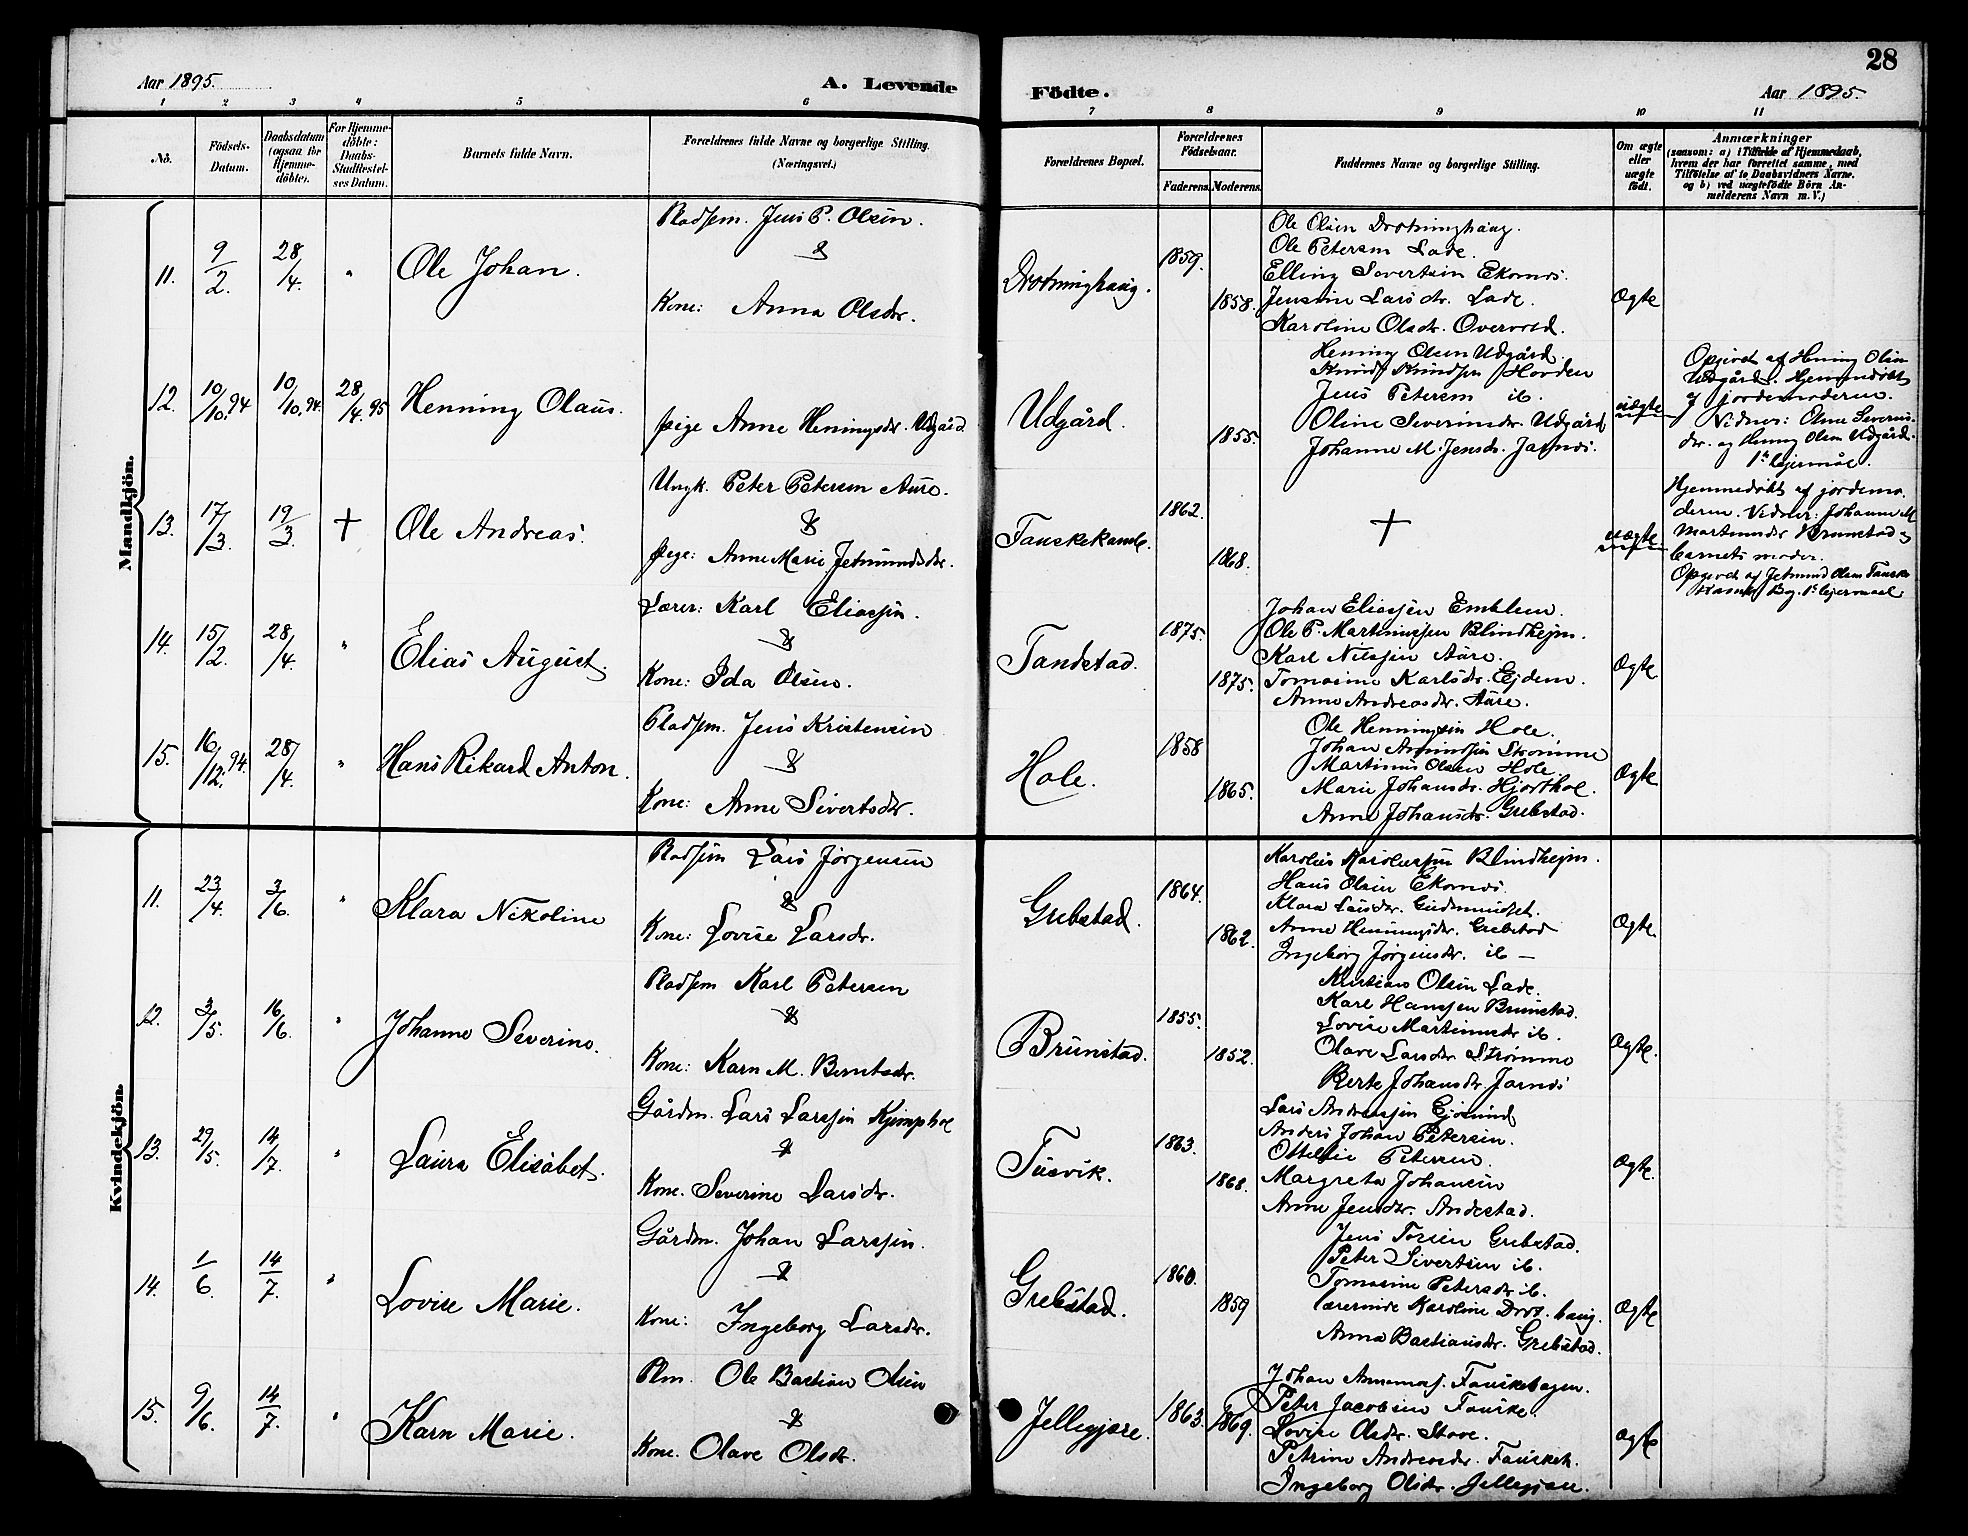 28
Aar 1895.
A. Levende
Födte.
Aar 1895.
1 2 3 4 5 6 7 8 9 10 11
No.
Födsels-Datum.
Daabsdatum (ogsaa för Hjemme-döbte).
For Hjemme-döbte: Daabs-Stadfæstel-ses Datum.
Barnets fulde Navn.
Forældrenes fulde Navne og borgerlige Stilling. (Næringsvei.)
Forældrenes Bopæl.
Forældrenes Födselsaar.
Faderens. Moderens.
Faddernes Navne og borgerlige Stilling.
Om ægte eller uægte födt.
Anmærkninger
(saasom: a) i Tilfælde af Hjemmedaab, hvem der har forrettet samme, med Tilföielse af to Daabsvidners Navne. og b) ved uægtefödte Börn An-melderens Navn m. V.)
Mandkjön.
11. 9/2. 28/4. " Ole Johan.
Pladsem. Jens P. Olsen.
&
Kone: Anna Olsdr.
Drotninghaug. 1859. 1858.
Ole Olsen Drotninghaug.
Ole Petersen Lade.
Elling Sivertsen Ekornes.
Jensine Larsdr. Lade.
Karoline Olsdr. Overvold.
Ægte
12. 10/10.94 10/10.94. 28/4.95 Henning Olaus.
pige Anne Henningsdr. Udgård
Udgård. 1855.
Henning Olsen Udgård.
Knud Knudsen Hovden
Jens Petersen ib.
Oline Severinsdr. Udgård
Johanne M. Jensdr. Jarnes.
uægte
Opgivet af Hening Olsen
Udgård. Hjemmedøbt
af jordemoderen.
Vidner: Oline Severins-
dr. og Hening Olsen Udgård.
1ste lejermål.
13. 17/3. 19/3 † Ole Andreas.
Ungk. Peter Petersen Aure.
&
pige: Anne Marie Jetmundsdr.
Fauskekambe. 1862. 1868.
†
uægte
Hjemmedøbt af jordemo-
deren. Vidner: Johanne M
Martinusdr Brunstad og
barnets moder.
Opgivet af Jetmund Olsen Fauske
14. 15/2. 28/4. " Elias August.
Lærer: Karl Eliassen.
&
Kone: Ida Olsen.
Tandstad. 1875. 1875.
Johan Eliassen Emblem.
Ole P. Martinussen Blindhejm.
Karl Nilssen Aure.
Tomasine Karlsdr. Ejdem.
Anne Andreasdr. Aure.
Ægte
15. 16/12.94. 28/4. " Hans Rikard Anton.
Pladsem. Jens Kristensen
&
Kone: Anne Sivertsdr.
Hole. 1858 1865.
Ole Henningsen Hole.
Johan Amundsen Strømme
Martinus Olsen Hole.
Marie Johansdr. Hjorthol.
Anne Johansdr. Grebstad.
Ægte
Kvindekjön.
11. 23/4. 3/6. " Klara Nikoline
Pladsem Lars Jørgensen
&
Kone: Lovise Larsdr.
Grebstad. 1864. 1862.
Karolus Karolussen Blindhejm.
Hans Olsen Ekornes.
Klara Larsdr. Gudmundset.
Anne Henningsdr. Grebstad
Ingeborg Jørgensdr. ib —
Ægte
12. 3/5. 16/6. " Johanne Severine.
Pladsem Karl Petersen
&
Kone: Karn M. Berntsdr.
Brunstad. 1855. 1852.
Kristian Olsen Lade.
Karl Hanssen Brunstad.
Lovise Martinusdr ib.
Olave Larsdr Strømme
Berte Johansdr. Jarnes
Ægte.
13. 29/5. 14/7. " Laura Elisabet.
Gårdm. Lars Larssen Kjemphol
&
Kone. Severine Larsdr.
Tusvik. 1863. 1868.
Lars Andreassen Gjømind
Anders Johan Petersen.
Ottelie Petersen.
Margreta Johansen
Anne Jensdr. Andestad.
Ægte.
14. 1/6. 14/7. " Lovise Marie.
Gårdm. Johan Larssen.
&
Kone: Ingeborg Larsdr.
Grebstad. 1860. 1859
Jens Tosten Grebstad.
Peter Sivertsen ib.
Tomasine Petersdr ib.
lærerinde Karoline Drot.haug.
Anna Bastiansdr. Grebstad.
Ægte
15. 9/6. 14/7. " Karn Marie.
Plm. Ole Bastian Olsen
&
Kone. Olave Olsdr.
Jellegjære. 1863. 1869.
Peter Jacobsen Fauske.
Lovise Olsdr. Stave.
Petrine Andreasdr. Fauskek.
Ingeborg Olsdr. Jellegjære.
Ægte